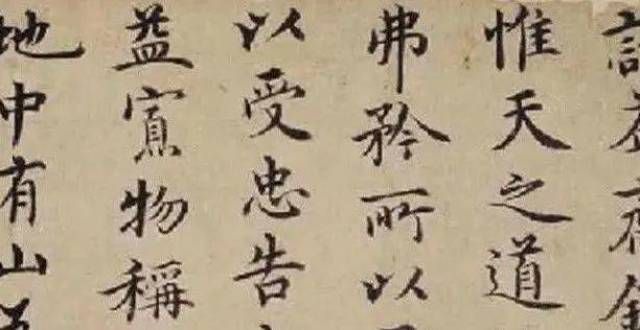 惟天之道
弗矜所以
以受忠告
益寡物稱
地中有山